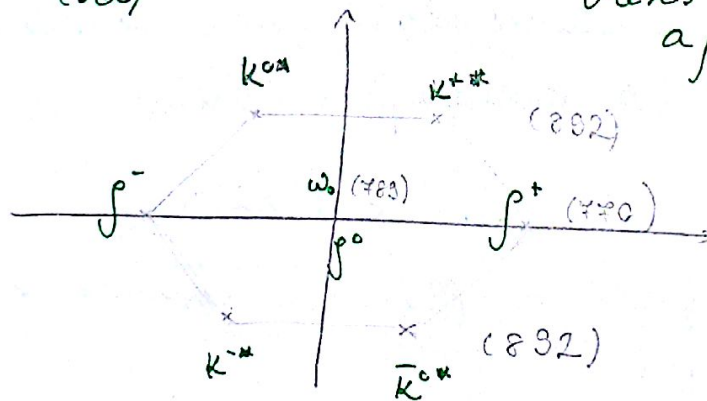 a
K⁰* K⁺* (892)
ρ⁻ ω₀ (783) ρ⁺ (770)
ρ⁰
K⁻* K̄⁰* (892)